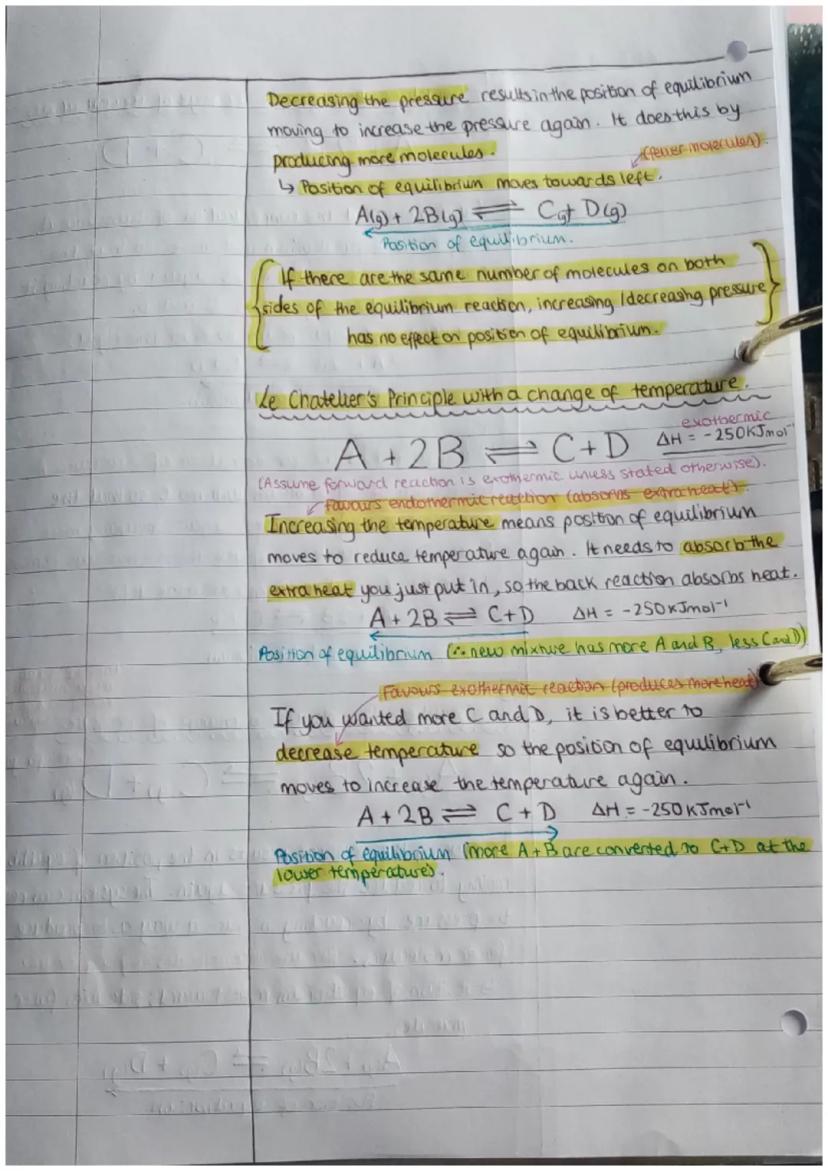 Decreasing the pressure results in the position of equilibrium
moving to increase the pressure again. It does this by
producing more molecules.
(fewer molecules).
↳ Position of equilibrium moves towards left.
A(g) + 2B(g) ⇌ C(g) + D(g)
Position of equilibrium.
{ If there are the same number of molecules on both
sides of the equilibrium reaction, increasing/decreasing pressure
has no effect on position of equilibrium. }
Le Chatelier's Principle with a change of temperature.
exothermic
A + 2B ⇌ C + D ΔH = -250KJmol⁻
(Assume forward reaction is exothermic unless stated otherwise).
Favours endothermic reaction (absorbs extra heat).
Increasing the temperature means position of equilibrium
moves to reduce temperature again. It needs to absorb the
extra heat you just put in, so the back reaction absorbs heat.
A + 2B ⇌ C+D ΔH = -250KJmol⁻¹
Position of equilibrium (∴ new mixture has more A and B, less C and D)
Favours exothermic reaction (produces more heat)
If you wanted more C and D, it is better to
decrease temperature so the position of equilibrium
moves to increase the temperature again.
A + 2B ⇌ C + D ΔH = -250KJmol⁻¹
Position of equilibrium (more A+B are converted to C+D at the
lower temperature).